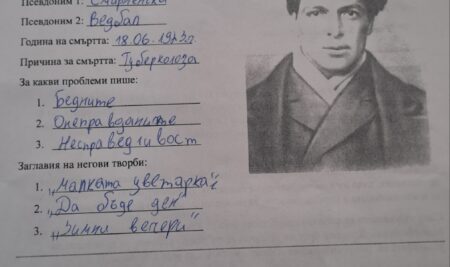 Псевдоним 1: Смирненски
Псевдоним 2: Ведбал
Година на смъртта: 18.06.1923г.
Причина за смъртта: Туберколоза
За какви проблеми пише:
1. Бедните
2. Онеправданите
3. Несправедливост
Заглавия на негови творби:
1. „Малката цветарка“
2. „Да бъде ден“
3. „Зимни вечери“